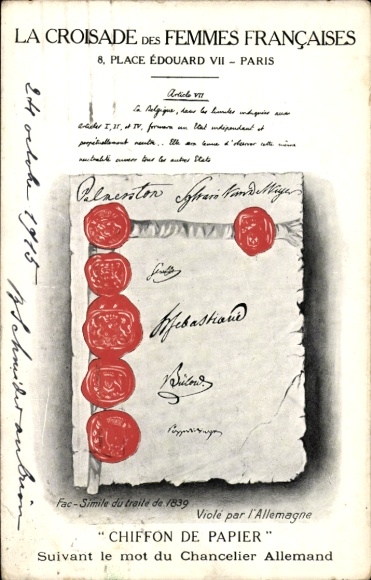 LA CROISADE DES FEMMES FRANÇAISES
8, PLACE ÉDOUARD VII – PARIS
Article VII
La Belgique, dans les limites indiquées aux
articles I, II, et IV, formera un Etat indépendant et
perpétuellement neutre. Elle sera tenue d'observer cette même
neutralité envers tous les autres Etats
Palmerston Sylvain Van de Weyer
Senfft
H Sebastiani
Bülow
Fac-Simile du traité de 1839
Violé par l'Allemagne
"CHIFFON DE PAPIER"
Suivant le mot du Chancelier Allemand
24 octobre 1915